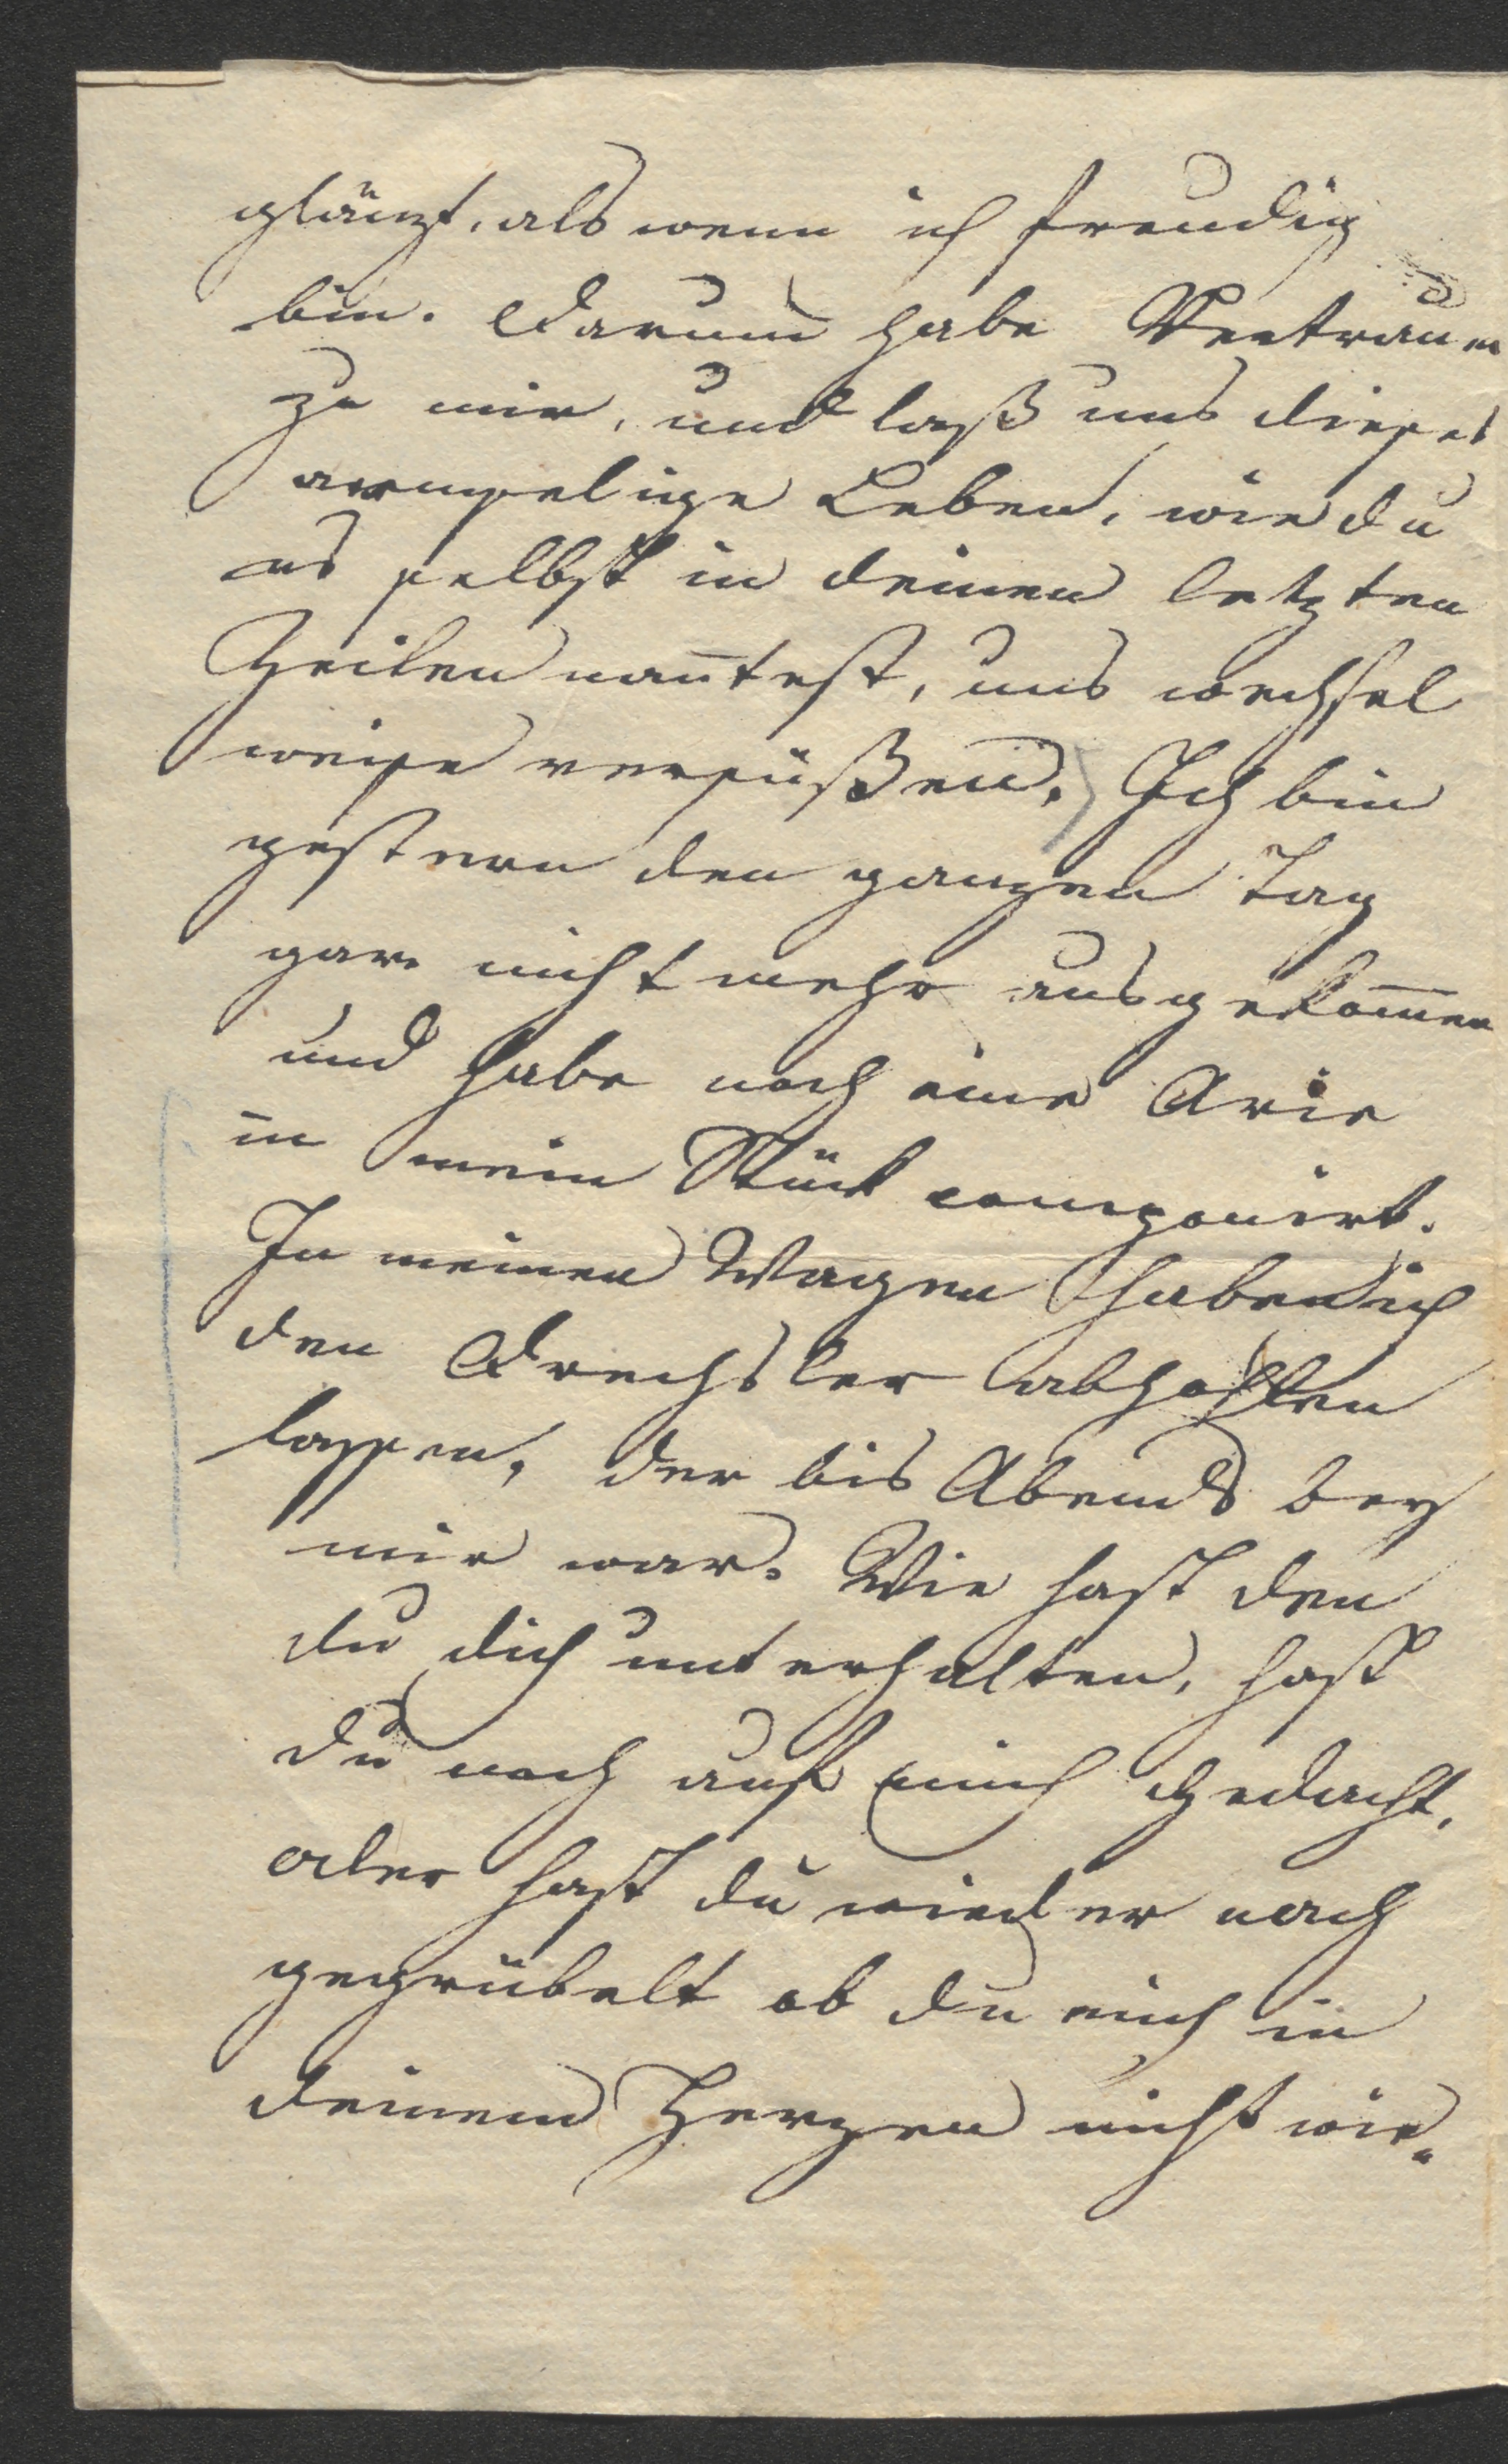 glänzt, als wenn ich freudig
bin. Darum habe Vertrauen
zu mir, und laß uns dieses
armselige Leben, wie du
es selbst in deinen letzten
Zeilen nan̄test, uns wechsel
weise versüßen. Ich bin
gestern den ganzen Tag
gar nicht mehr ausgekom̄en
und habe noch eine Arie
in mein Stück componirt.
In meinen Wagen habe ich
den Drechsler abhohlen
lassen, der bis Abends bey
mir war. Wie hast den
du dich unterhalten, hast
du noch auf mich gedacht,
oder hast du wieder nach
gegrübelt ob du mich in
deinem Herzen nicht wie